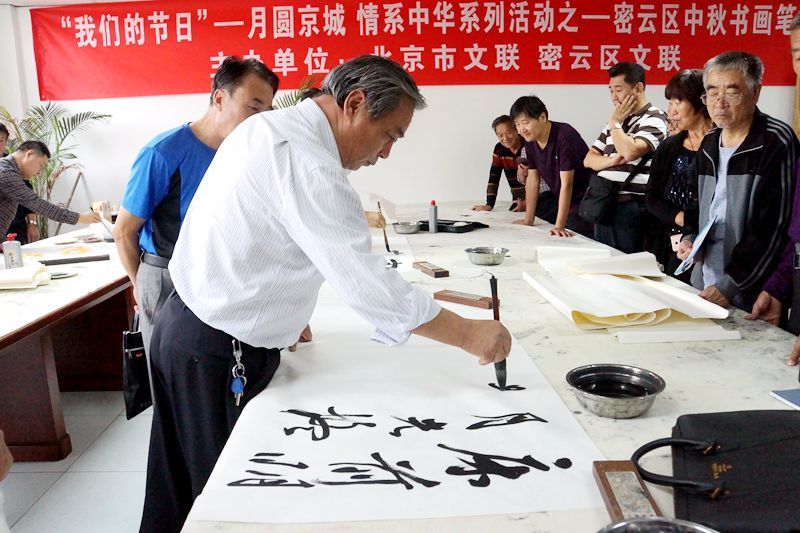 “我们的节日”—月圆京城 情系中华系列活动之—密云区中秋书画笔
主办单位：北京市文联 密云区文联
床前明
月光疑